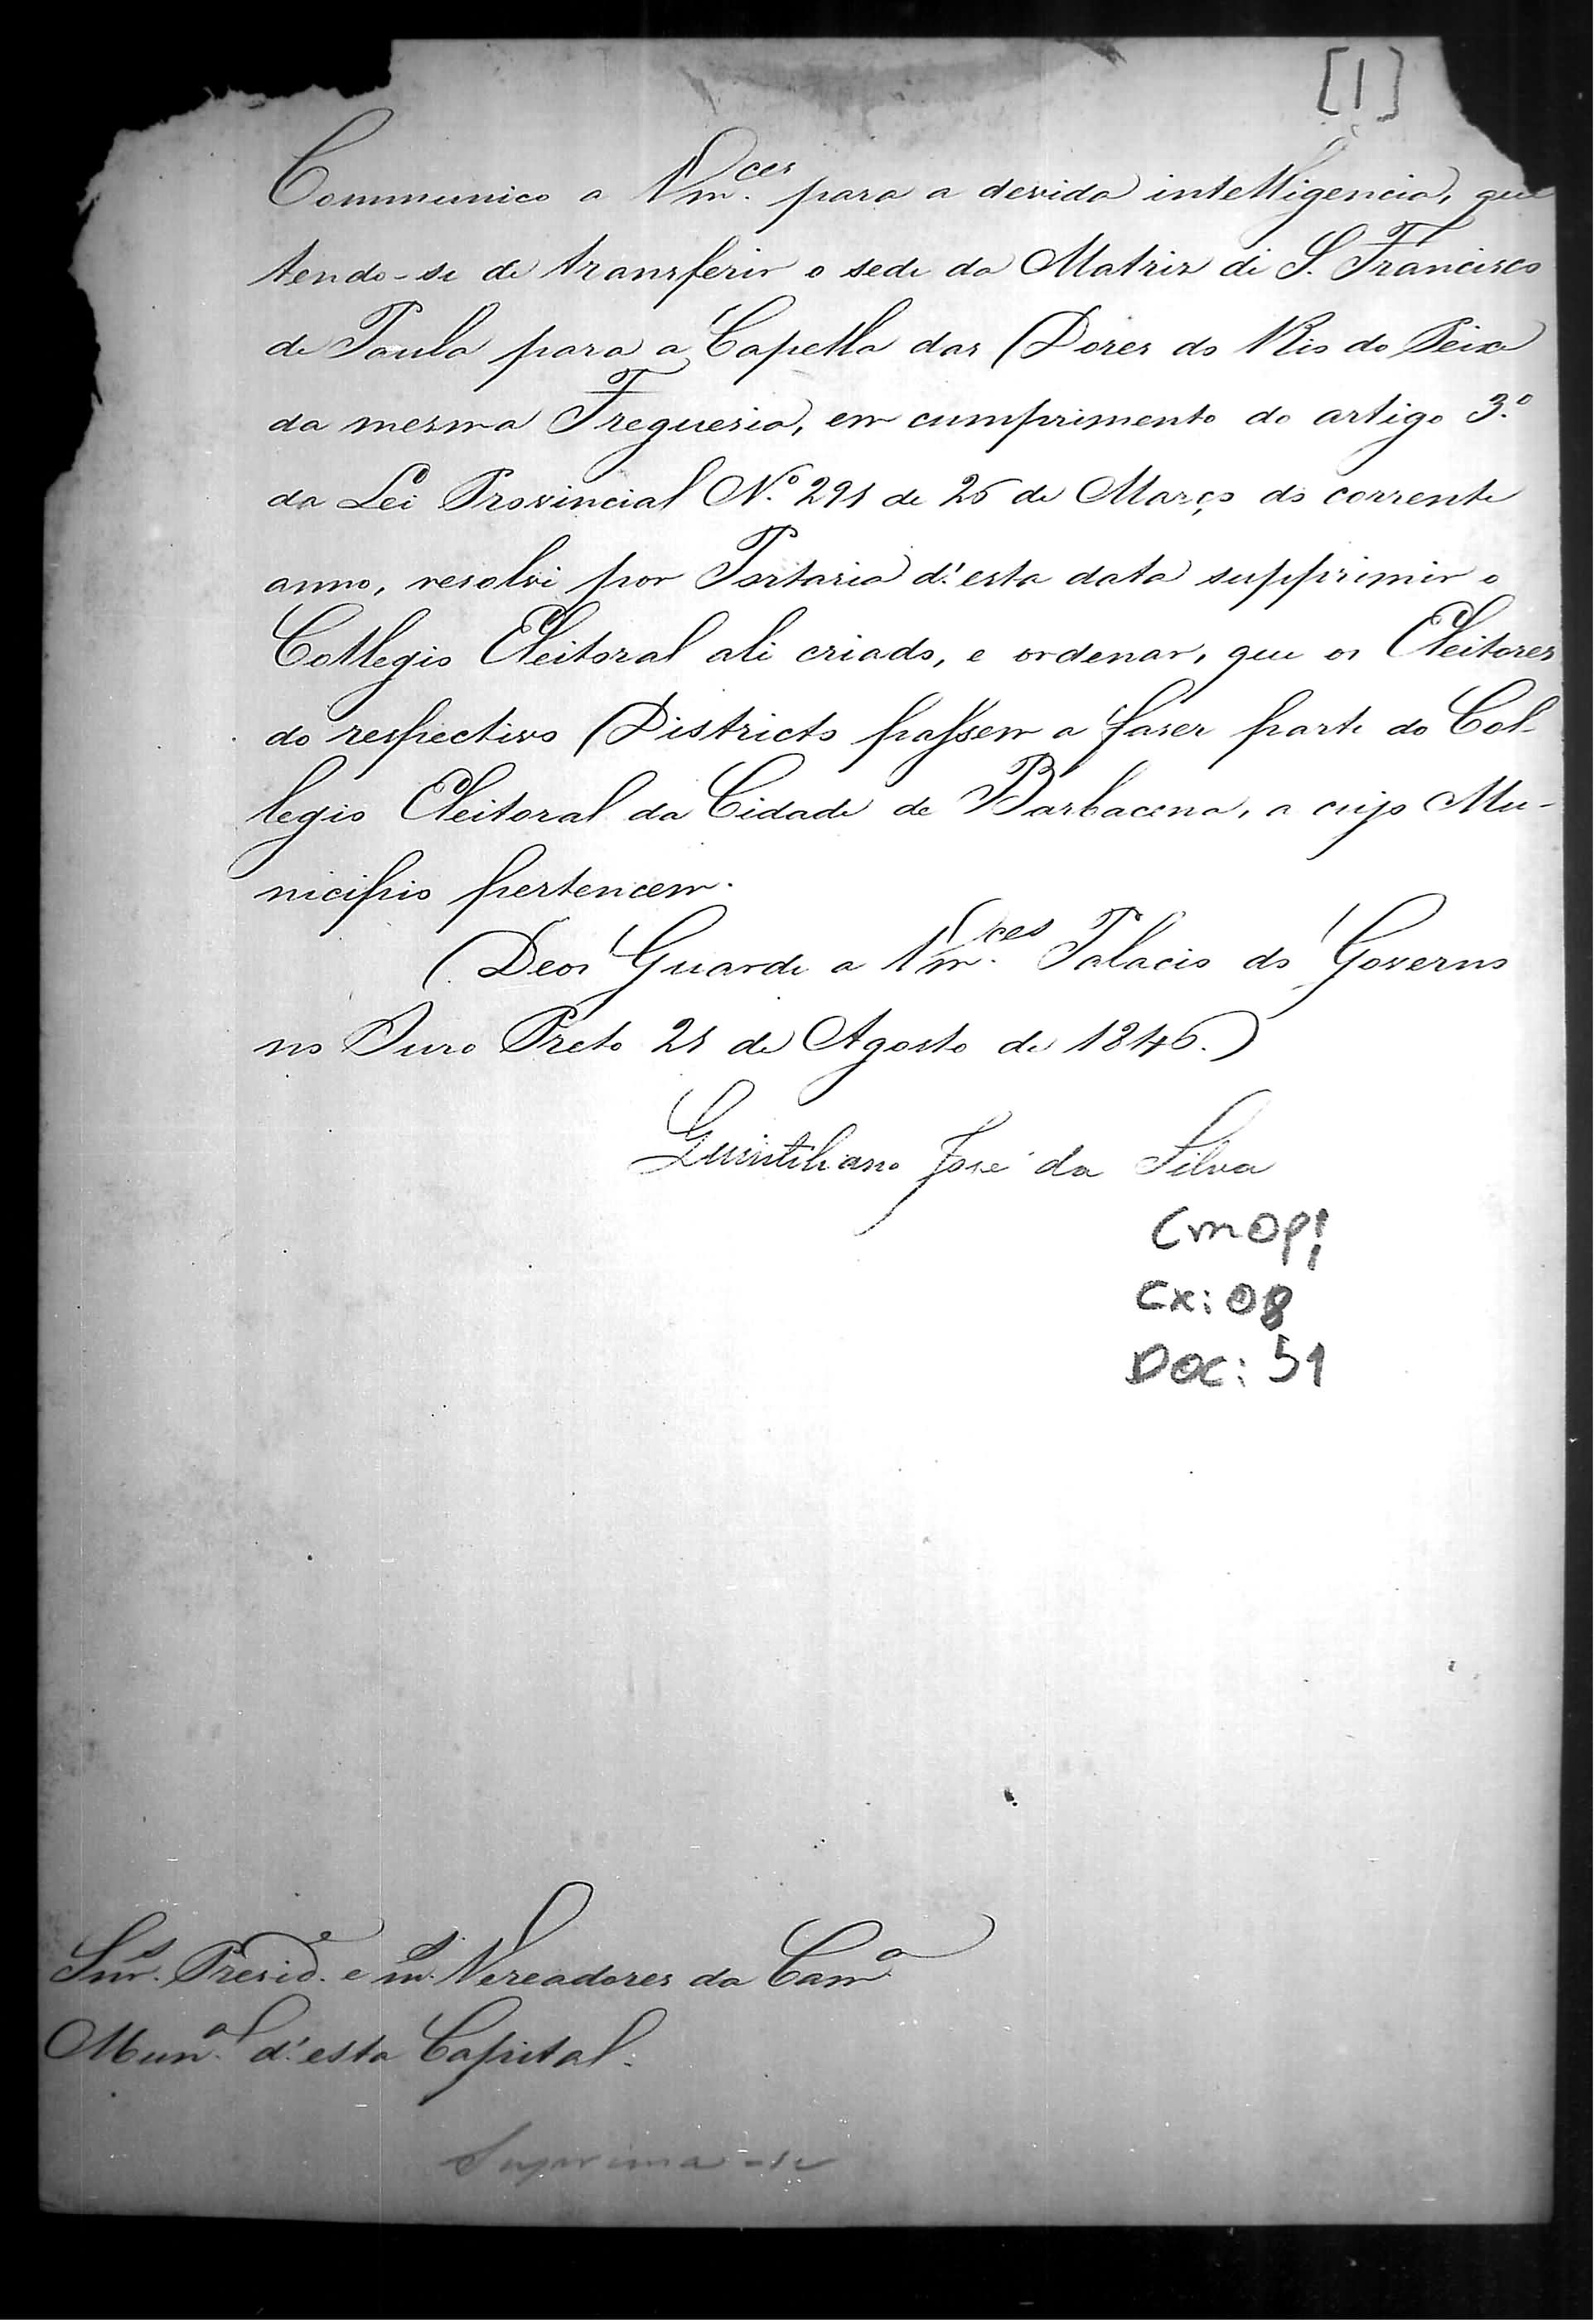 [1]
Communico a Vm.ces para a devida intelligencia, que
tendo-se de transferir a sede da Matriz de S. Francisco
de Paula para a Capella das Dores do Rio do Peixe
da mesma Freguesia, em cumprimento do artigo 3.º
da Lei Provincial N.º 291 de 26 de Março do corrente
anno, resolvi por Portaria d'esta data supprimir o
Collegio Eleitoral ali criado, e ordenar, que os Eleitores
do respectivo Districto passem a faser parte do Col-
legio Eleitoral da Cidade de Barbacena, a cujo Mu-
nicipio pertencem.
Deos Guarde a Vm.ces Palacio do Governo
no Ouro Preto 21 de Agosto de 1846.
Quintiliano José da Silva
CMOP!
Cx: 08
DOC: 51
Snr.s Presid.e e m.s Vereadores da Cam.a
Mun.al d'esta Capital.
Suprima-se